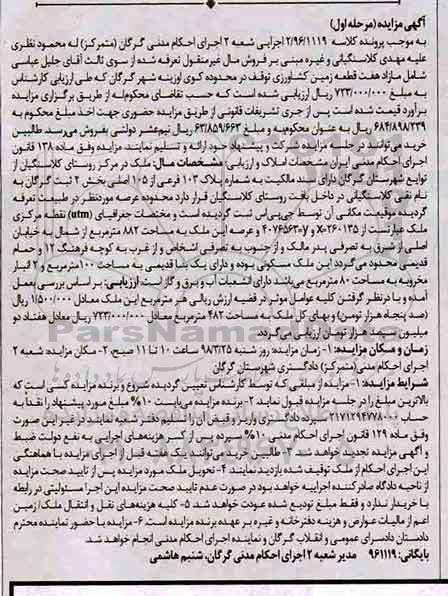 آگهی مزایده (مرحله اول)
به موجب پرونده کلاسه ۲/۹۶/۱۱۱۹ اجرایی شعبه ۲ اجرای احکام مدنی گرگان (متمرکز) له محمود نظری
علیه مهدی کلاسنگیانی و غیره مبنی بر فروش مال غیرمنقول تعرفه شده از سوی ثالث آقای جلیل عباسی
شامل سازاد هفت قطعه زمین کشاورزی توقف در محدوده کوی اوزینه شهر گرگان که طی ارزیابی کارشناس
به مبلغ ۷۳۳/۰۰۰/۰۰۰ ریال ارزیابی شده است که حسب تقاضای محکوم‌له از طریق برگزاری مزایده
برآورد قیمت شده است پس از جری تشریفات قانونی از طریق مزایده حضوری جهت اخذ مبلغ محکوم به
۶۸۴/۸۹۸/۲۳۹ ریال به عنوان محکوم‌به و مبلغ ۶۳/۸۵۹/۶۶۳ ریال نیم‌عشر دولتی بفروش می‌رسد. طالبین
خرید می‌توانند در جلسه مزایده شرکت و پیشنهاد خود ارائه و تسلیم نمایند. مزایده وفق ماده ۱۳۸ قانون
اجرای احکام مدنی ایران مشخصات املاک و ارزیابی مشخصات مال: ملک در مرکز روستای کلاسنگیان از
توابع شهرستان گرگان دارای سند مالکیت به شماره پلاک ۱۰۳ فرعی از ۱۰۵ اصلی بخش ۲ ثبت گرگان به
نام نقی کلاسنگیانی در داخل بافت روستای کلاسنگیان قرار دارد محدوده عرصه موردنظر در طبیعت تعرفه
گردیده موقعیت مکانی آن توسط جی‌پی‌اس ثبت گردیده است و مختصات جغرافیای (utm) نقطه مرکزی
ملک عبارتست از x-۲۶۰۱۳۵ و y-۴۰۷۶۵۶۳ و عرصه این ملک به مساحت ۸۸۲ مترمربع از شمال به خیابان
اصلی از شرق به تصرفی پدر مالک و از جنوب به تصرفی اشخاص و از غرب به کوچه فرهنگ ۱۲ و حمام
قدیمی محدود می‌گردد این ملک مسکونی بوده و دارای یک بنا قدیمی به مساحت ۱۰۰ مترمربع و ۲ انبار
مخروبه به مساحت ۸۰ مترمربع می‌باشد دارای انشعابات آب و برق و گاز است. ارزیابی: بر اساس بررسی بعمل
آمده و با درنظر گرفتن کلیه عوامل موثر در قضیه ارزش ریالی هر مترمربع این ملک معادل ۱/۵۰۰/۰۰۰ ریال
(صد پنجاه هزار تومن) و بهای کل ملک به مساحت ۴۸۲ مترمربع معادل ۷۲۳/۰۰۰/۰۰۰ ریال معادل هفتاد دو
میلیون سیصد هزار تومان ارزیابی می‌گردد.
زمان و مکان مزایده: ۱- زمان مزایده: روز شنبه ۹۸/۳/۲۵ ساعت ۱۰ تا ۱۱ صبح ۲- مکان مزایده: شعبه ۲
اجرای احکام مدنی (متمرکز) دادگستری شهرستان گرگان
شرایط مزایده: ۱- مزایده از مبلغی که توسط کارشناس تعیین گردیده شروع و برنده مزایده کسی است که
بالاترین مبلغ را در جلسه مزایده قبول نماید ۲- برنده مزایده می‌بایست ۱۰% مبلغ مورد پیشنهاد را نقداً به
حساب ۲۱۷۱۲۹۴۷۷۸۰۰ سپرده دادگستری واریز و قبض آن را تسلیم دفتر شعبه نمایند در غیر این صورت
وفق ماده ۱۲۹ قانون اجرای احکام مدنی ۱۰% سپرده پس از کسر هزینه‌های اجرایی به نفع دولت ضبط
و آگهی مزایده تجدید خواهد شد ۳- طالبین خرید می‌توانند یک هفته قبل از اجرای مزایده با هماهنگی
این اجرای احکام از ملک توقیف شده بازدید نمایند. ۴- تحویل ملک مورد مزایده پس از تایید صحت مزایده
از ناحیه دادگاه صادرکننده اجراییه خواهد بود در صورت عدم تایید صحت مزایده این اجرا مسئولیتی در رابطه
با خریدار ندارد و فقط مبلغ تودیع شده عودت خواهد شد. ۵- کلیه هزینه‌های نقل و انتقال ملک/ زمین
اعم از مالیات عوارض و هزینه دفترخانه و غیره بر عهده برنده مزایده است. ۶- مزایده با حضور نماینده محترم
دادستان دادسرای عمومی و انقلاب گرگان و نماینده اجرای احکام مدنی انجام خواهد شد.
بایگانی: ۹۶۱۱۱۹ مدیر شعبه ۲ اجرای احکام مدنی گرگان، شنیم هاشمی